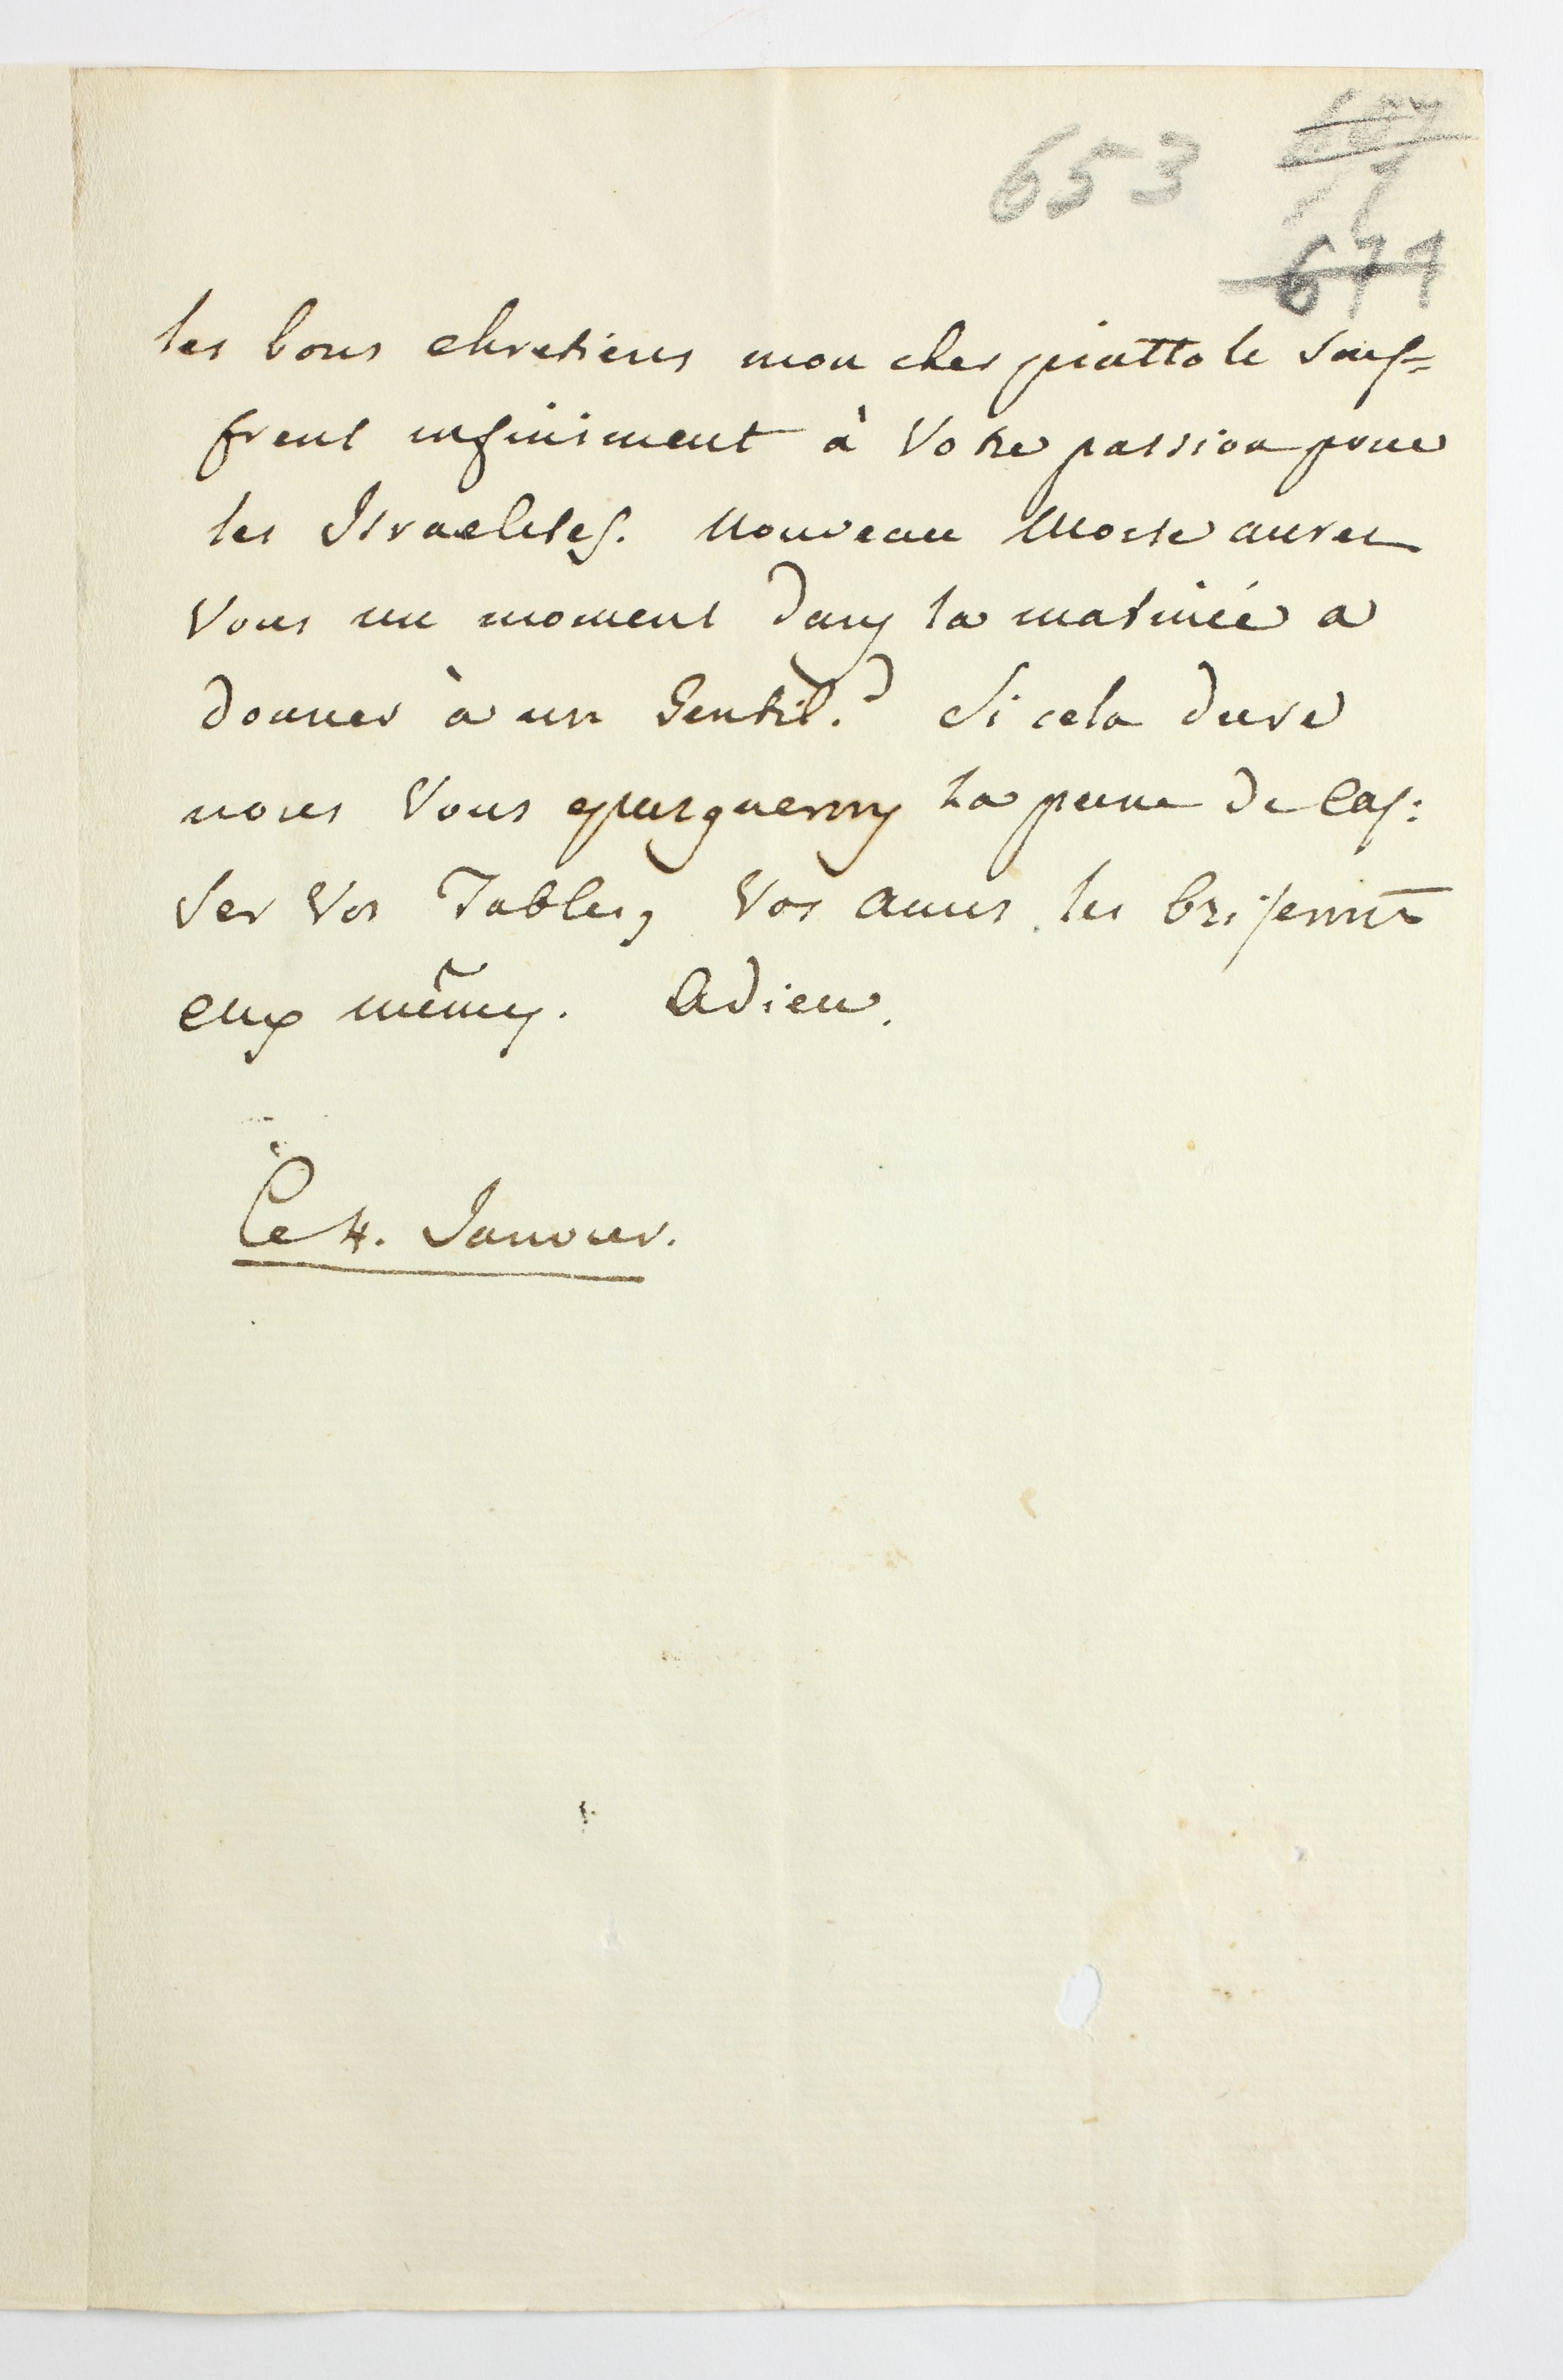 653
677
les bons chretiens mon cher piattole souf=
frent infiniment à Votre passion pour
les Israelites. Nouveau Moise aurez
Vous un moment dans la matinée a
donner à un Gentil? Si cela dure
nous Vous epargnerons la peine de cas:
ser Vos Tables, Vos amis les briseront
eux mêmes. Adieu.
Ce 4. Janvier.